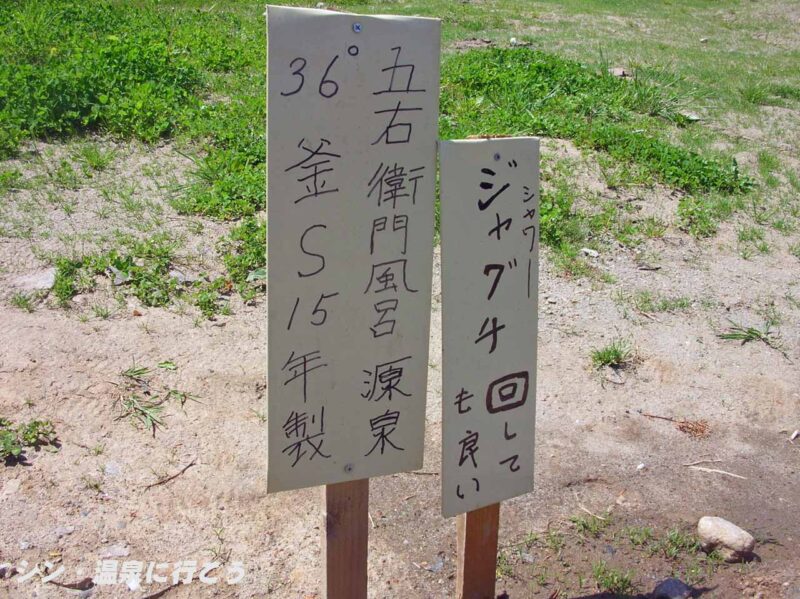 五右衛門風呂 源泉
36° 釜S15年製
シャワー
ジャグチ 回して
も良い
シン・温泉に行こう